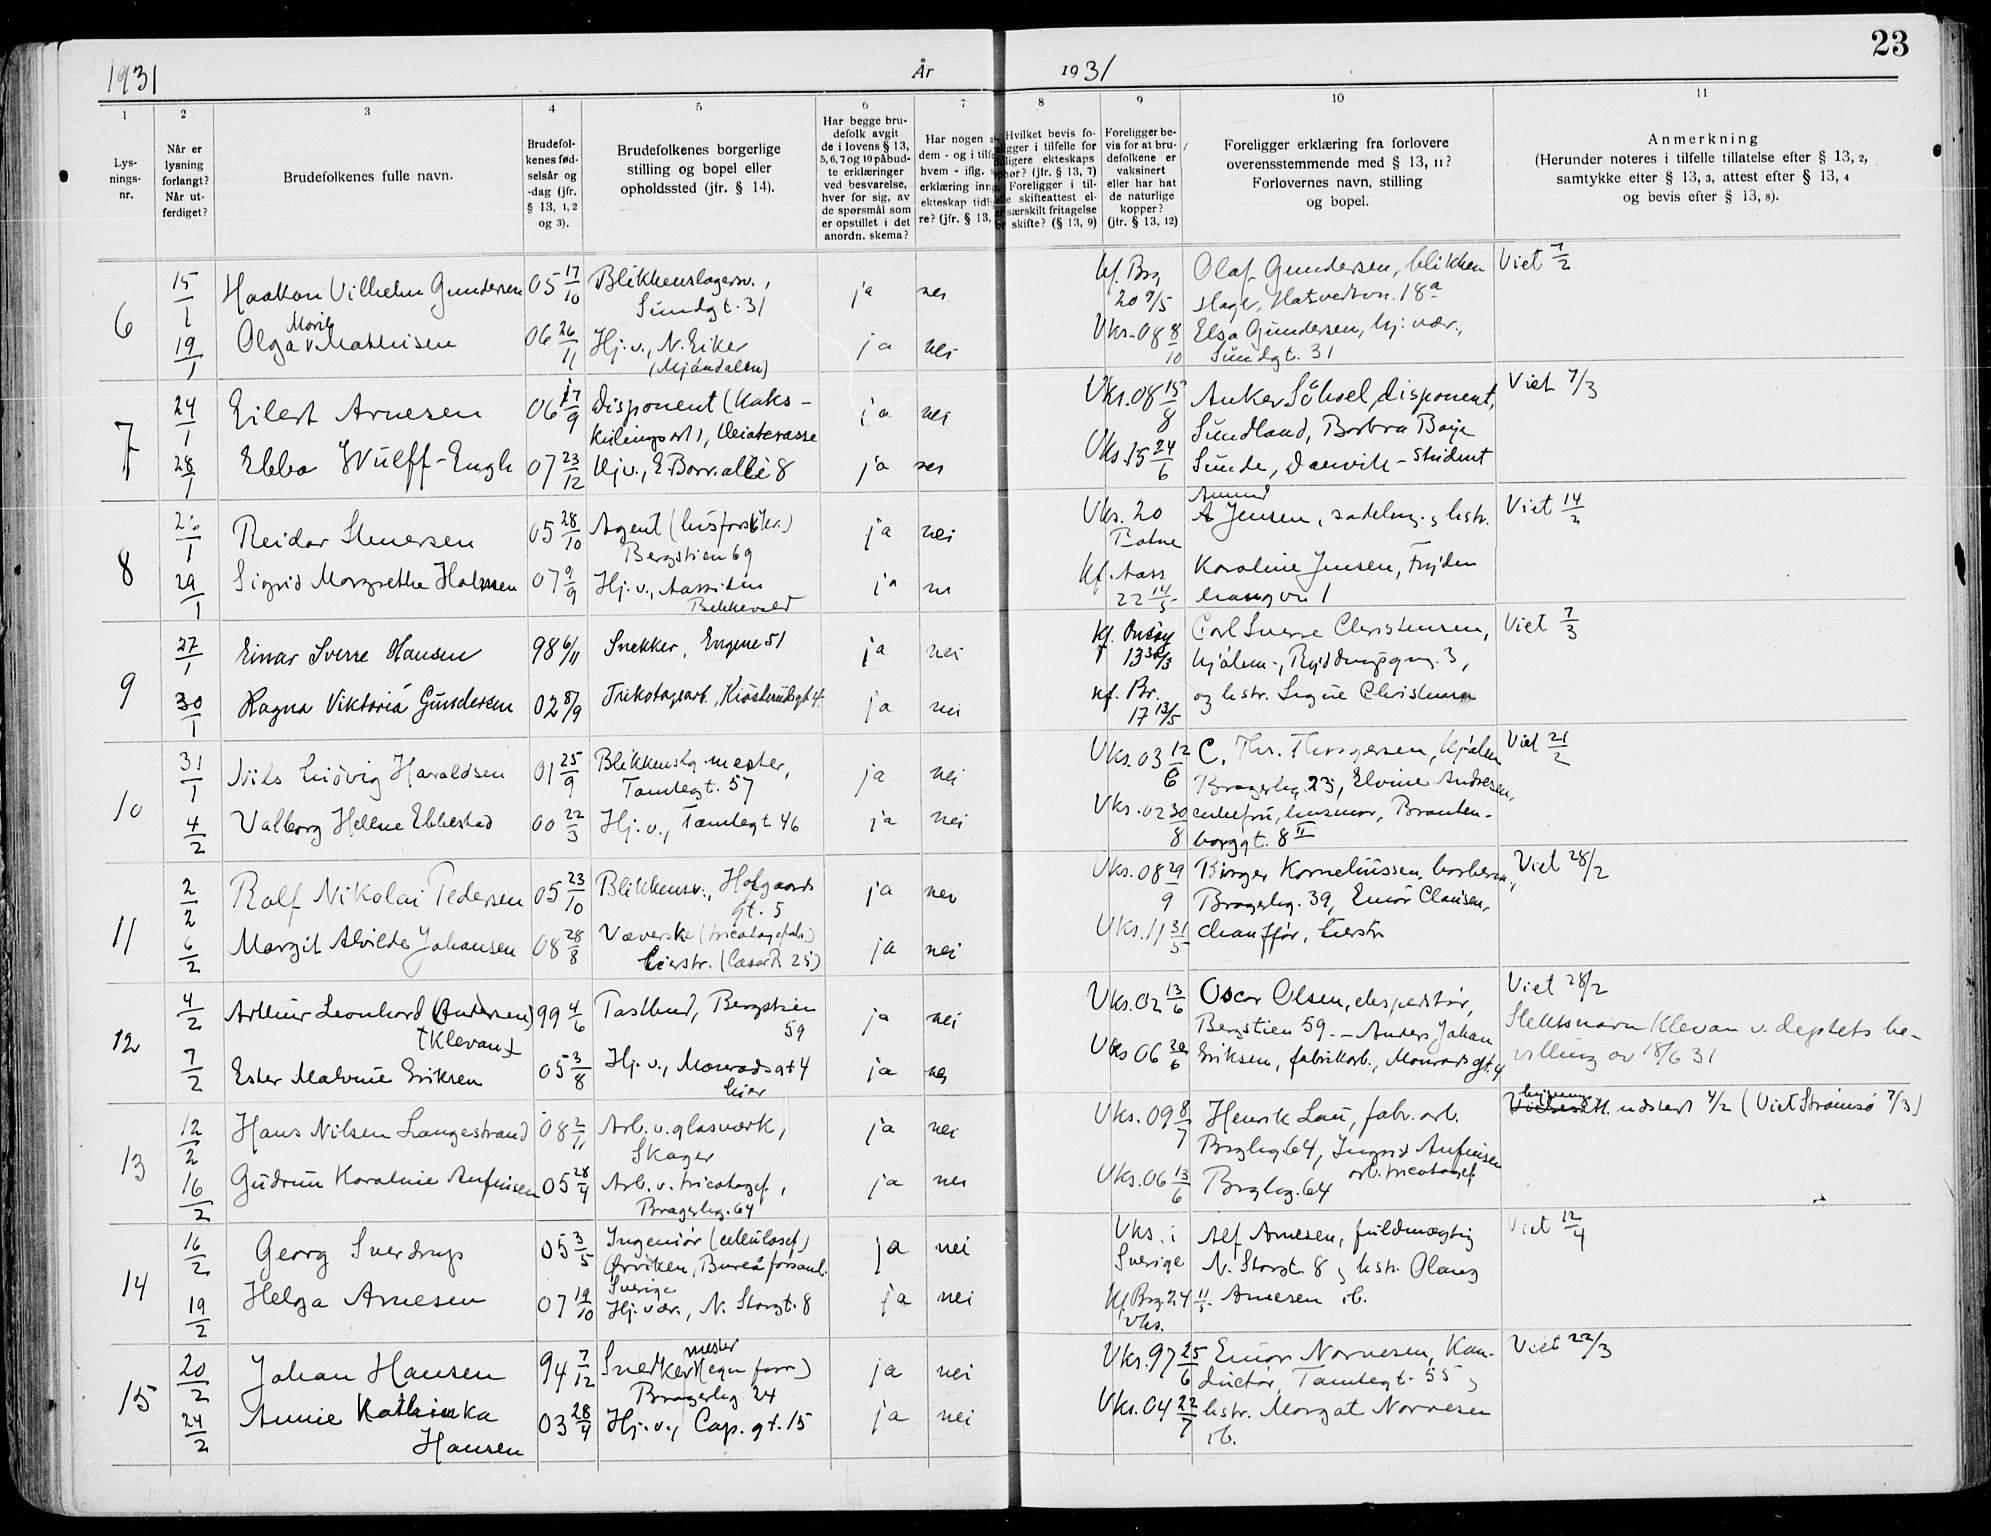 1931 År 1931 23
1 2 3 4 5 6 7 8 9 10 11
Lys-
nings-
nr.
Når er
lysning
forlangt?
Når ut-
ferdiget?
Brudefolkenes fulle navn.
Brudefol-
kenes fød-
selsår og
-dag (jfr.
§ 13, 1, 2
og 3).
Brudefolkenes borgerlige
stilling og bopel eller
opholdssted (jfr. § 14).
Har begge bru-
defolk avgit
de i lovens § 13,
5, 6, 7 og 10 påbud-
te erklæringer
ved besvarelse,
hver for sig, av
de spørsmål som
er opstillet i det
anordn. skema?
Har nogen
dem - og i tilf
hvem - iflg.
erklæring inng
ekteskap tidli
re? (jfr. § 13,
Hvilket bevis fo-
ligger i tilfelle for
tidligere ekteskaps
ophør? (jfr. § 13, 7)
Foreligger i til-
felle skifteattest el-
særskilt fritagelse
for skifte? (§ 13, 9)
Foreligger be-
vis for at bru-
defolkene er
vaksinert
eller har hat
de naturlige
kopper?
(jfr. § 13, 12)
Foreligger erklæring fra forlovere
overensstemmende med § 13, 11?
Forlovernes navn, stilling
og bopel.
Anmerkning
(Herunder noteres i tilfelle tillatelse efter § 13, 2,
samtykke efter § 13, 3, attest efter § 13, 4
og bevis efter § 13, 8).
6 15/1 Haakon Vilhelm Gundersen 05 17/10 Blikkenslagersv., ja nei kf. Brg Olaf Gundersen, blikken Viet 7/2
Sundgt. 31 20 9/5 slager, Hatvedtvn. 18a
19/1 Olga Marie Mathisen 06 26/11 Hj. v., N. Eiker ja nei Vks. 08 8/10 Elsa Gundersen, hj. vær.,
(Mjøndalen) Sundgt. 31
7 24/1 Eilert Arnesen 06 17/9 Disponent (Kaks- ja nei Vks. 08 15/8 Anker Söhoel, disponent, Viet 7/3
1, Veiaterasse Sundland, Borbra Boye
28/1 Ebba Wulff-Engh 07 23/12 Hj v., E. Borr. allé 8 ja nei Vks. 15 24/6 Sunde, Danvik - Student
8 26/1 Reidar Simersen 05 28/10 Agent ja nei Vks. 20 Amund
A Jensen, sadelm. og hstr. Viet 14/2
Bergstien 69 Botne
29/1 Sigrid Margrethe Halmsen 07 9/9 Hj. v., Aassiden ja nei kf. Aass Karoline Jensen, Fryden
Bekkevold 22 14/5 haugvn 1
9 27/1 Einar Sverre Hansen 98 6/11 Snekker, Engene 51 ja nei kf. Onsøy Carl Sverre Christensen, Viet 7/3
13 30/3 kjølem., Ryddingsgng. 3,
30/1 Ragna Viktoria Gundersen 02 8/9 Trikotagearb., Kiøsterudsgt 4. ja nei kf. Br. og hstr. Signe Christensen
17 13/5
10 31/1 Nils Ludvig Haraldsen 01 25/9 Blikkenslg. mester, ja nei Vks. 03 12/6 C. Thr. Thorgersen, kjølem Viet 21/2
Tomtegt. 57 Bragerhg. 23, Elvine Andresen,
4/2 Valborg Helene Ebbestad 00 22/3 Hj. v., Tomtegt 46 ja nei Vks. 02 30/8 enkefru, husmor, Branten-
borggt. 8 II
11 2/2 Rolf Nikolai Pedersen 05 23/10 Blikkensv., Hofgaards ja nei Vks. 08 29/9 Birger Korneliussen, barberm., Viet 28/2
gt. 5 Bragerhg. 39, Einar Clausen,
6/2 Margit Alvilde Johansen 08 28/8 Væverske (tricotagefab.) ja nei Vks. 11 31/5 chauffør, Lierstr.
Lierstr. 25)
12 4/2 Arthur Leonhard (Andersen) 99 4/6 Postbud, Bergstien ja nei Vks. 02 13/6 Oscar Olsen, ekspeditør, Viet 28/2
(Klevan) 59 Bergstien 59. - Anders Johan Slektsnavn Klevan v. deptets be-
7/2 Ester Malvine Eriksen 05 3/8 Hj. v., Monradsgt 4 ja nei Vks 06 20/6 Eriksen, fabrikarb., Monradsgt. 4 villing av 18/6 31
Lier
13 12/2 Hans Nilsen Langestrand 08 2/11 Arb. v. glasverk, ja nei Vks. 09 8/7 Henrik Lau, fabr. arb. utsted 4/2 (Viet Strømsø 7/3)
Skager Brghg 64, Ingrid Anfinsen
16/2 Gudrun Karoline Anfinsen 05 28/4 Arb. v. tricotagef., ja nei Vks. 06 13/6 arb. tricotagef.
Bragerhg. 64 Brghg. 64
14 16/2 Georg Sverdrup 05 3/5 Ingeniør (cellulosef) ja nei Vks. i Alf Arnesen, fuldmægtig Viet 12/4
Ørviken, Bureå församl. Sverige N. Storgt. 8 og hstr. Olaug
19/2 Helga Arnesen 07 19/10 Sverige
Hj. vær., N. Storgt. 8 ja nei kf Brg. 24 11/5. Arnesen ib.
Vks.
15 20/2 Johan Hansen 94 7/12 Snekkermester (egen forr.) ja nei Vks. 97 25/6 Einar Norvesen, Kon- Viet 22/3
Bragerhg. 24 ductør, Tomtegt. 55 og
24/2 Annie Kathinka 03 28/4 Hj. v., Cap. gt. 15 ja nei Vks. 04 22/7 hstr. Margat Norvesen
Hansen ib.